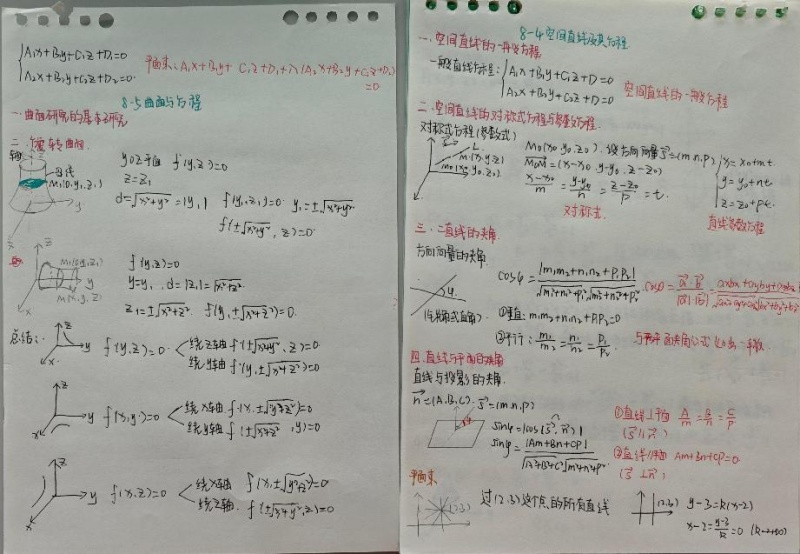 A₁x+B₁y+C₁z+D₁=0
A₂x+B₂y+C₂z+D₂=0
平面束:A₁x+B₁y+C₁z+D₁+λ(A₂x+B₂y+C₂z+D₂)
=0
8-5曲面与方程
一.曲面研究的基本研究
二.旋转曲面
轴
母线
M₁(0,y₁,z₁)
y
yoz平面 f(y,z)=0
z=z₁
d=√x²+y²=|y₁| f(y₁,z₁)=0 y₁=±√x²+y²
f(±√x²+y²,z)=0
z
M₁(0,y₁,z₁)
y
M(x,y,z)
x
f(y,z)=0
y=y₁,d=|z₁|=√x²+z²
z₁=±√x²+z² f(y,±√x²+z²)=0
总结:
z
y
x
f(y,z)=0
绕z轴f(±√x²+y²,z)=0
绕y轴f(y,±√x²+z²)=0
z
y
x
f(x,y)=0
绕x轴f(x,±√y²+z²)=0
绕y轴f(±√x²+z²,y)=0
z
y
x
f(x,z)=0
绕x轴f(x,±√y²+z²)=0
绕z轴f(±√x²+y²,z)=0
8-4空间直线及其方程
一.空间直线的一般方程
一般直线方程:
A₁x+B₁y+C₁z+D=0
A₂x+B₂y+C₂z+D=0
空间直线的一般方程
二.空间直线的对称式方程与参数方程.
对称式方程(参数式)
L
M(x,y,z)
M₀(x₀,y₀,z₀)
M₀(x₀,y₀,z₀).设方向向量s=(m,n,p)
M₀M=(x-x₀,y-y₀,z-z₀)
(x-x₀)/m=(y-y₀)/n=(z-z₀)/p=t.
对称式
x=x₀+mt
y=y₀+nt
z=z₀+pt.
直线参数方程
三.二直线的夹角
方向向量的夹角
φ
cosφ=|m₁m₂+n₁n₂+p₁p₂|/√m²+n²+p²√m²+n²+p²
①垂直:m₁m₂+n₁n₂+p₁p₂=0
②平行:m₁/m₂=n₁/n₂=p₁/p₂
四.直线与平面的夹角
直线与投影的夹角.
n=(A,B,C) s=(m,n,p)
sinφ=|cos(s,n)|
sinφ=|Am+Bn+Cp|/√A²+B²+C²√m²+n²+p²
①直线⊥平面 A/m=B/n=C/p
(s∥n)
②直线∥平面 Am+Bn+Cp=0
(s⊥n)
平面束
(2,3)
过(2,3)这个点的所有直线
(2,3)
y-3=k(x-2)
x-2=(y-3)/k=0